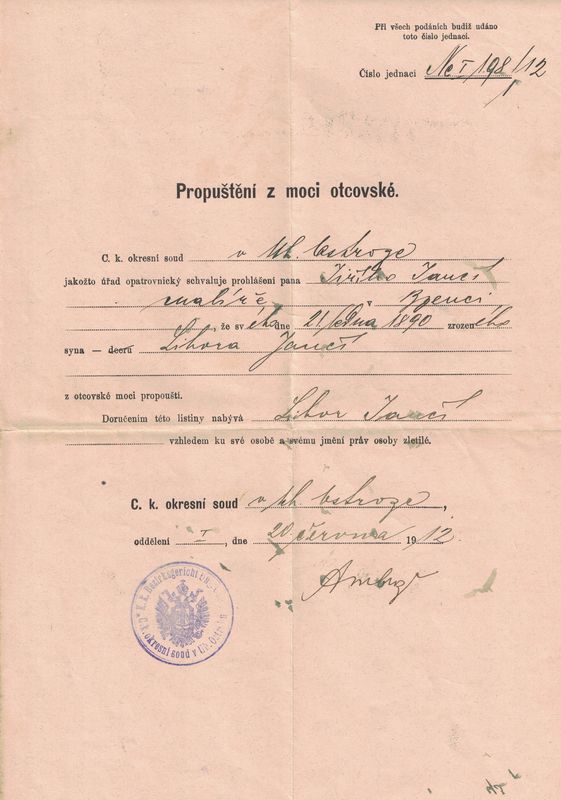 Při všech podáních budiž udáno
toto číslo jednací.
Číslo jednací Nc I 198/12
Propuštění z moci otcovské.
C. k. okresní soud v Uh. Ostroze
jakožto úřad opatrovnický schvaluje prohlášení pana Jiřího Jančí
malíře v Bzenci
, že svého dne 21. ledna 1890 zrozeného
syna — dceru Libora Jančí
z otcovské moci propouští.
Doručením této listiny nabývá Libor Jančí
vzhledem ku své osobě a svému jmění práv osoby zletilé.
C. k. okresní soud v Uh. Ostroze,
oddělení I, dne 20 června 1912.
K. k. Bezirksgericht
C. k. okresní soud v Uh. Ostrohu